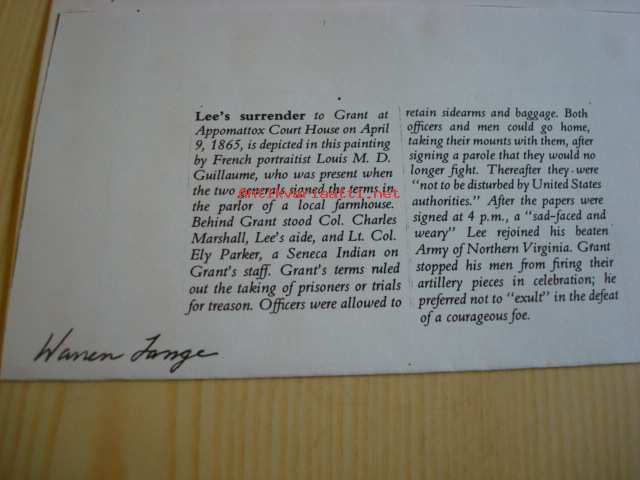 Lee's surrender to Grant at
Appomattox Court House on April
9, 1865, is depicted in this painting
by French portraitist Louis M. D.
Guillaume, who was present when
the two generals signed the terms in
the parlor of a local farmhouse.
Behind Grant stood Col. Charles
Marshall, Lee's aide, and Lt. Col.
Ely Parker, a Seneca Indian on
Grant's staff. Grant's terms ruled
out the taking of prisoners or trials
for treason. Officers were allowed to
retain sidearms and baggage. Both
officers and men could go home,
taking their mounts with them, after
signing a parole that they would no
longer fight. Thereafter they were
"not to be disturbed by United States
authorities." After the papers were
signed at 4 p.m., a "sad-faced and
weary" Lee rejoined his beaten
Army of Northern Virginia. Grant
stopped his men from firing their
artillery pieces in celebration; he
preferred not to "exult" in the defeat
of a courageous foe.
Antikvariaatti.net
Warren Lange